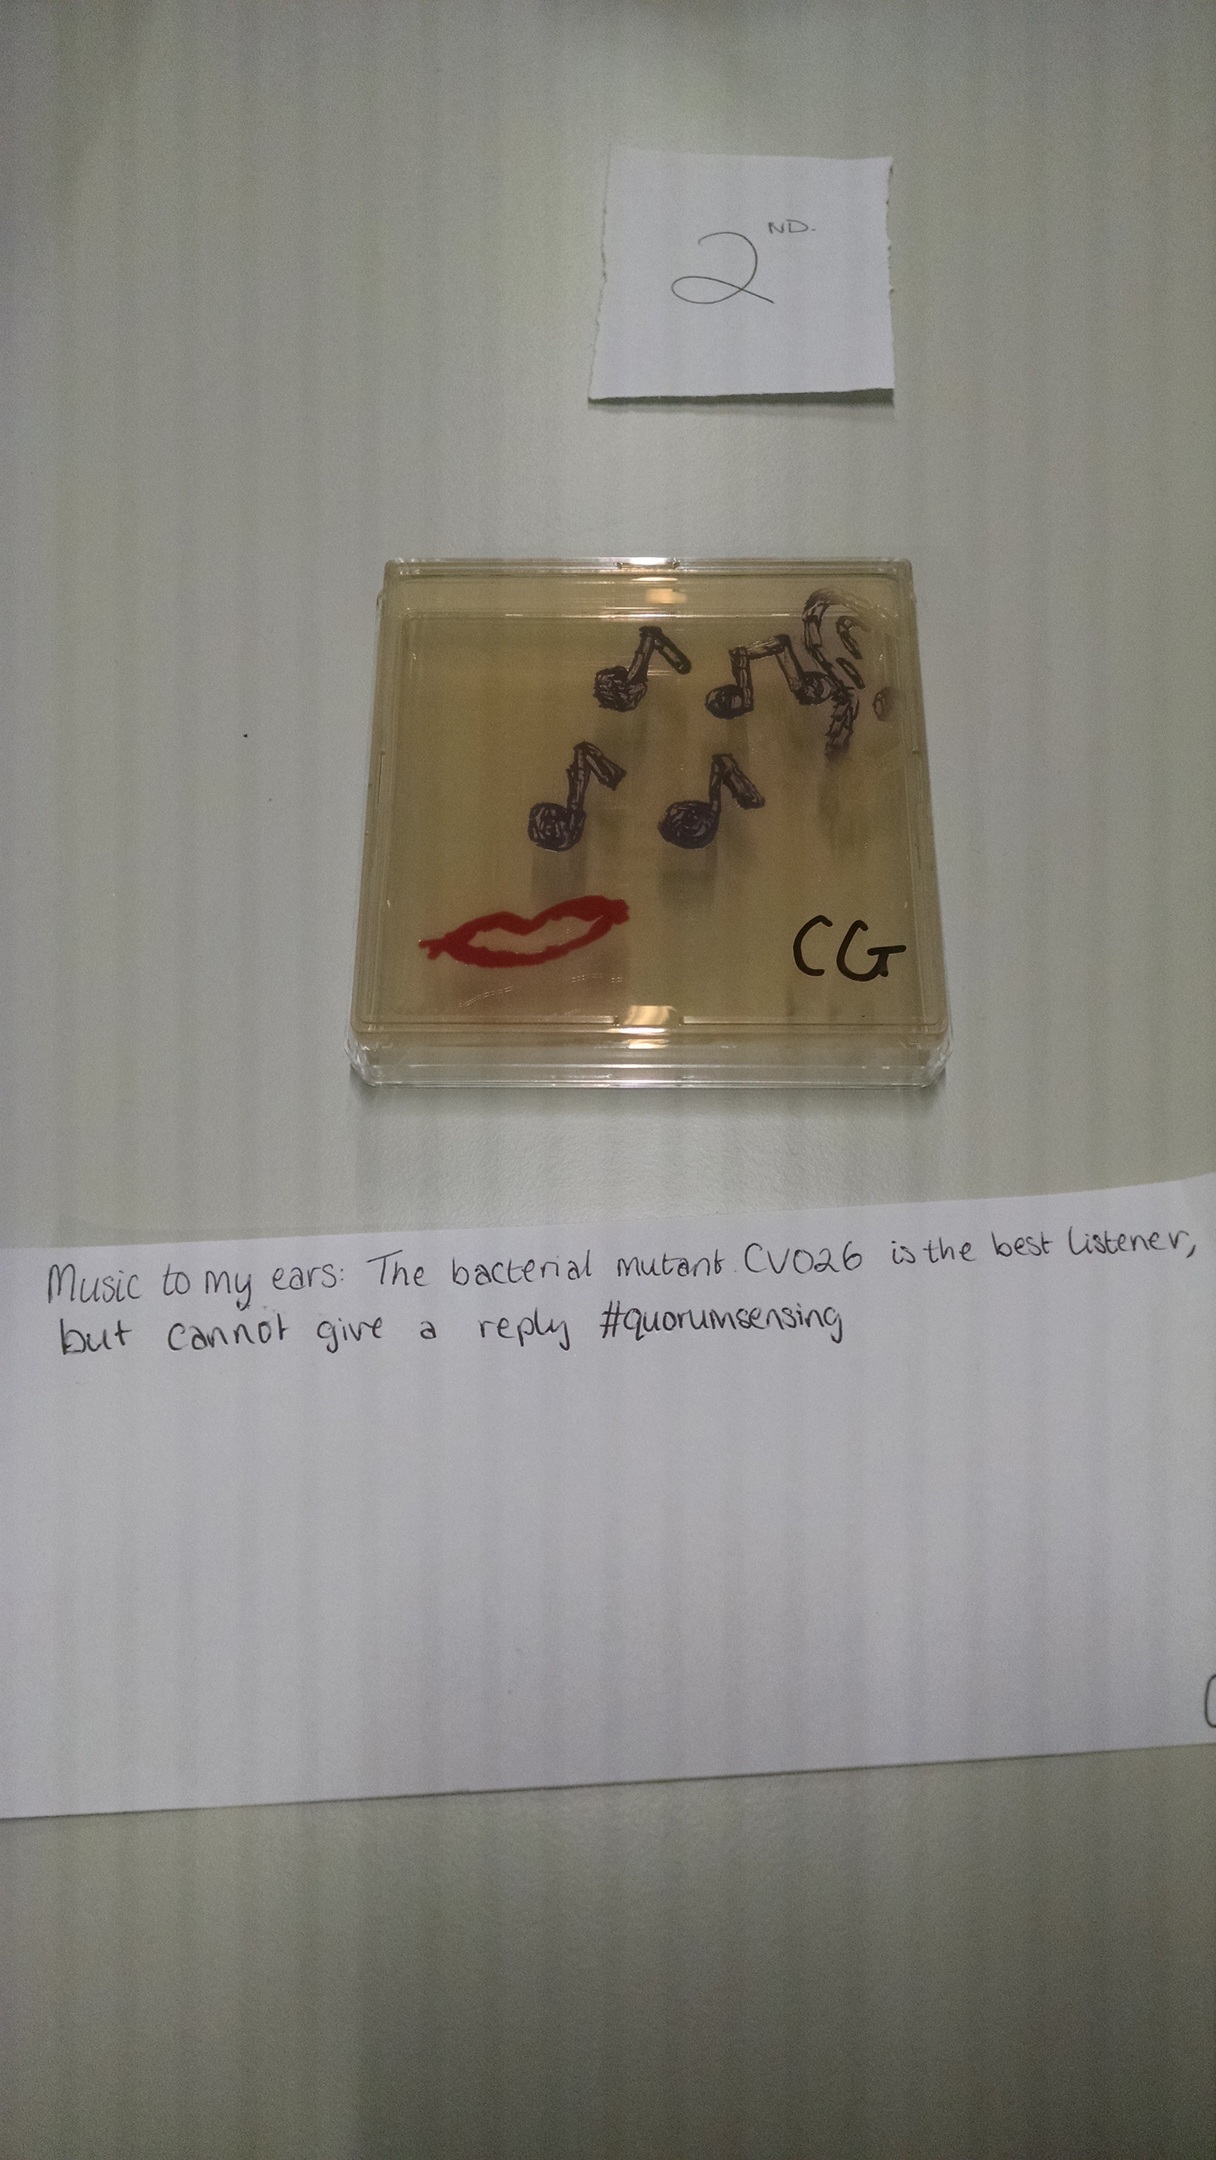 2ND.
CG
Music to my ears: The bacterial mutant CV026 is the best listener,
but cannot give a reply #quorumsensing